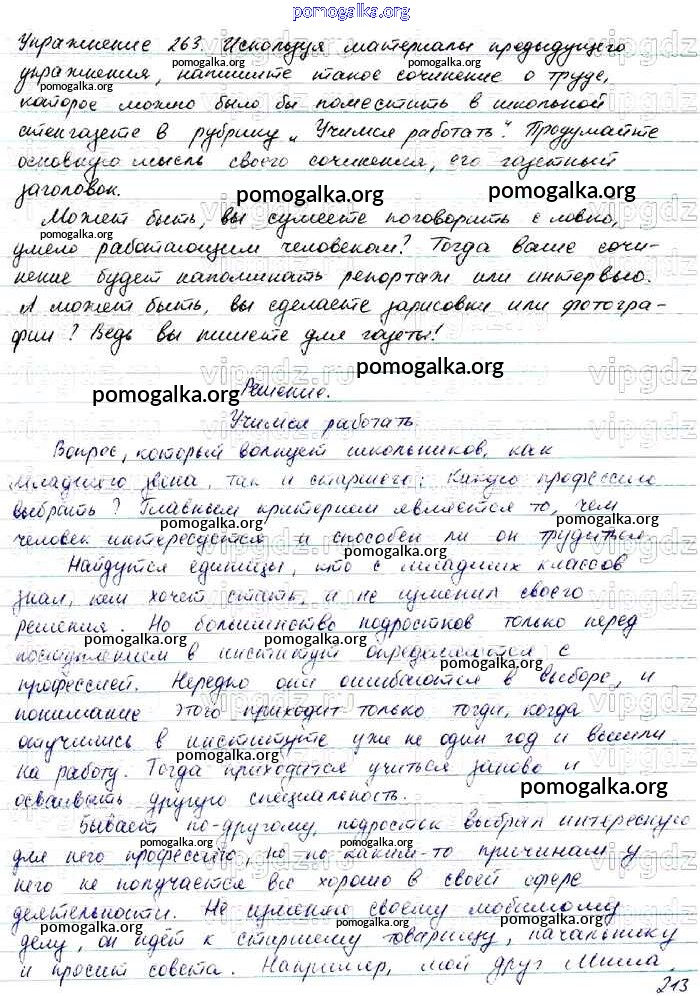 pomogalka.org
Упражнение 263. Используя материалы предыдущего
упражнения, напишите такое сочинение о труде,
которое можно было бы поместить в школьной
стенгазете в рубрику „Учимся работать". Продумайте
основную мысль своего сочинения, его газетный
заголовок.
Может быть, вы сумеете поговорить с ловко,
умело работающим человеком? Тогда ваше сочи-
нение будет напоминать репортаж или интервью.
А может быть, вы сделаете зарисовки или фотогра-
фии? Ведь вы пишете для газеты!
Решение.
Учимся работать
Вопрос, который волнует школьников, как
младшего звена, так и старшего: Какую профессию
выбрать? Главным критерием является то, чем
человек интересуется и способен ли он трудиться.
Найдутся единицы, кто с младших классов
знал, кем хочет стать, и не изменил своего
решения. Но большинство подростков только перед
поступлением в институт определяются с
профессией. Нередко они ошибаются в выборе, и
понимание этого приходит только тогда, когда
отучились в институте уже не один год и вышли
на работу. Тогда приходится учиться заново и
осваивать другую специальность.
Бывает по-другому, подросток выбрал интересную
для него профессию, но по каким-то причинам у
него не получается все хорошо в своей сфере
деятельности. Не изменяя своему любимому
делу, он идёт к старшему товарищу, начальнику
и просит совета. Например, мой друг Миша,
213